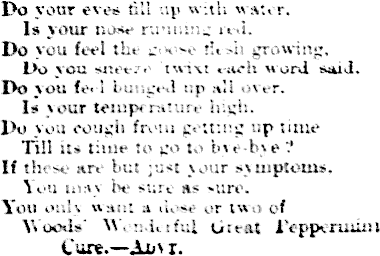 Do your eyes fill up with water.
Is your nose running red.
Do you feel the goose flesh growing,
Do you sneeze 'twixt each word said.
Do you feel bunged up all over.
Is your temperature high.
Do you cough from getting up time
Till its time to go to bye-bye?
If these are but just your symptoms.
You may be sure as sure.
You only want a dose or two of
Woods' Wonderful Great Peppermint
Cure.—ADVT.